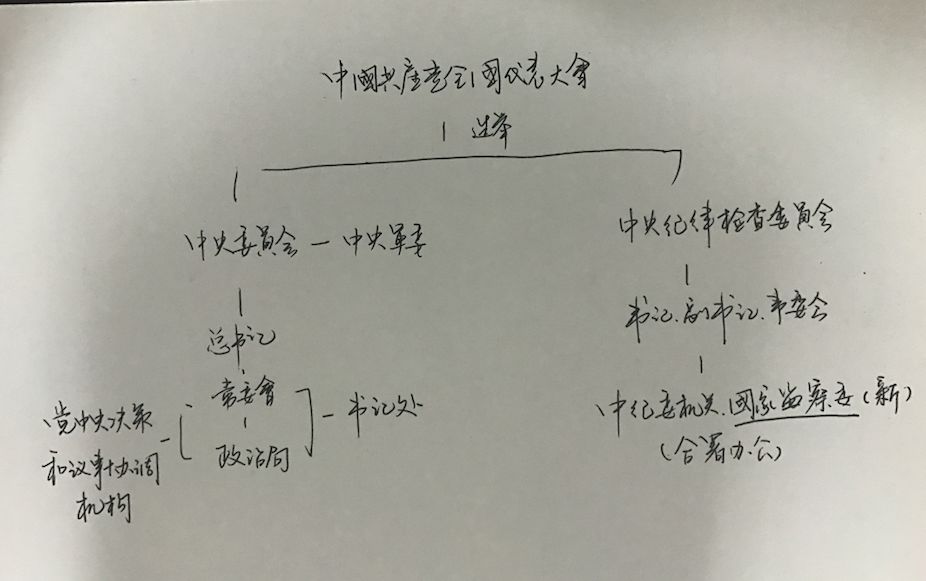 中國共产党全國代表大會
选举
中央委員会 — 中央军委
中央纪律检查委員会
总书记
书记、副书记、常委会
常委會
政治局
书记处
党中央决策
和议事协调
机构
中纪委机关、國家监察委(新)
(合署办公)